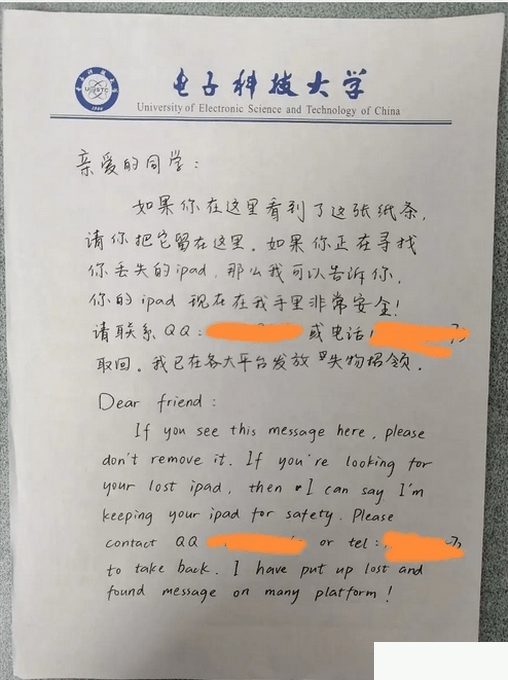 电子科技大学
University of Electronic Science and Technology of China
亲爱的同学：
如果你在这里看到了这张纸条，
请你把它留在这里。如果你正在寻找
你丢失的ipad，那么我可以告诉你，
你的ipad现在在我手里非常安全！
请联系QQ： 或电话：
取回。我已在各大平台发放“失物招领。
Dear friend：
If you see this message here, please
don't remove it. If you're looking for
your lost ipad, then I can say I'm
keeping your ipad for safety. Please
contact QQ or tel：
to take back. I have put up lost and
found message on many platform！